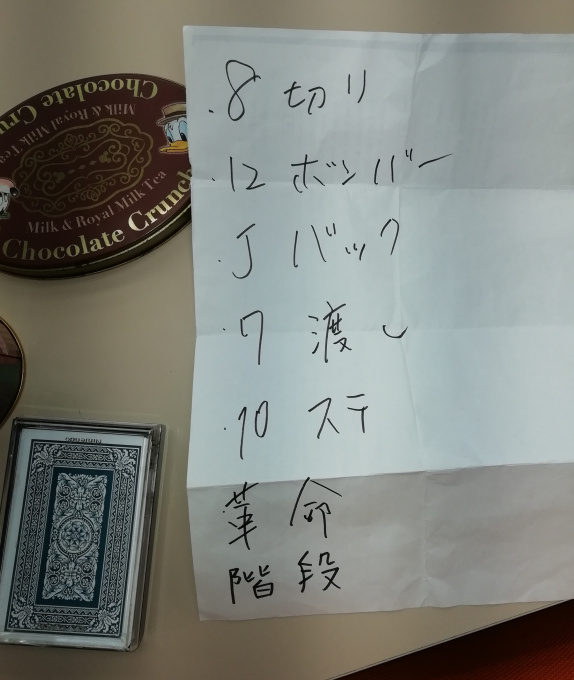 Chocolate Crunch
Milk & Royal Milk Tea
Milk & Royal Milk Tea
Chocolate Crunch
.8 切り
.12 ボンバー
.J バック
.7 渡し
.10 ステ
革命
階段